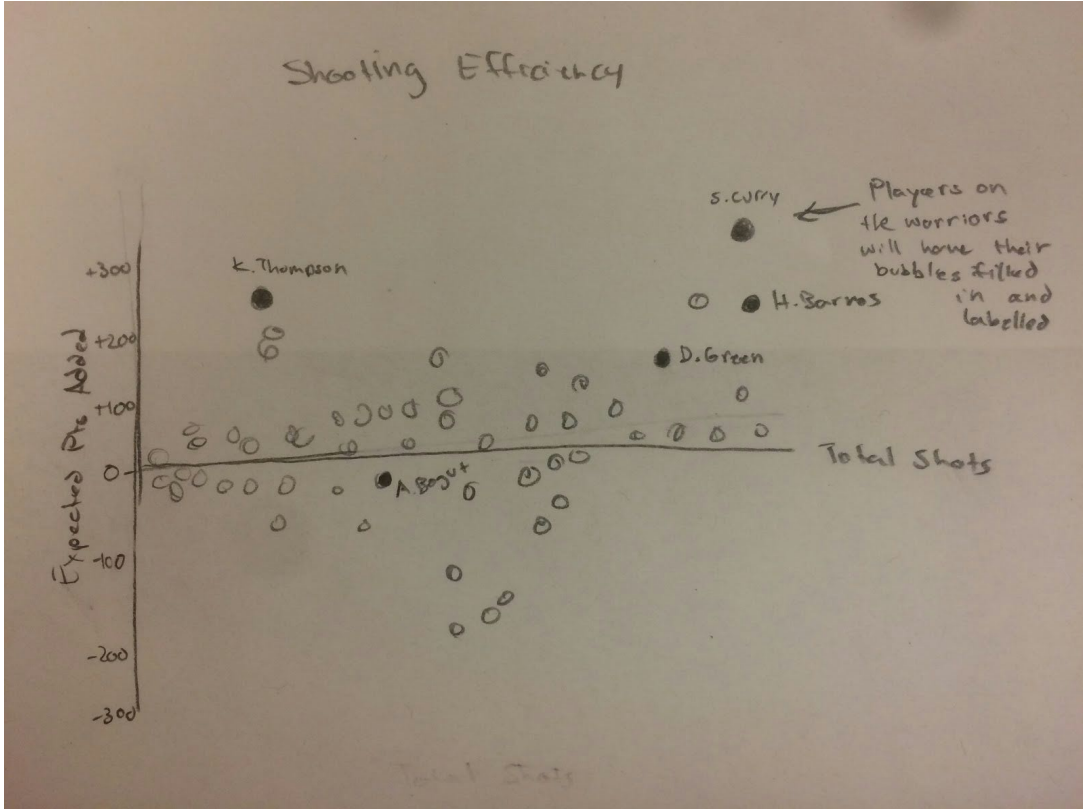 Shooting Efficiency
S. Curry
Players on
the worriors
will have their
bubbles filled
in and
labelled
K. Thompson
H. Barnes
D. Green
A. Bogut
Total Shots
Expected Pts Added
+300
+200
+100
0
-100
-200
-300
Total Shots